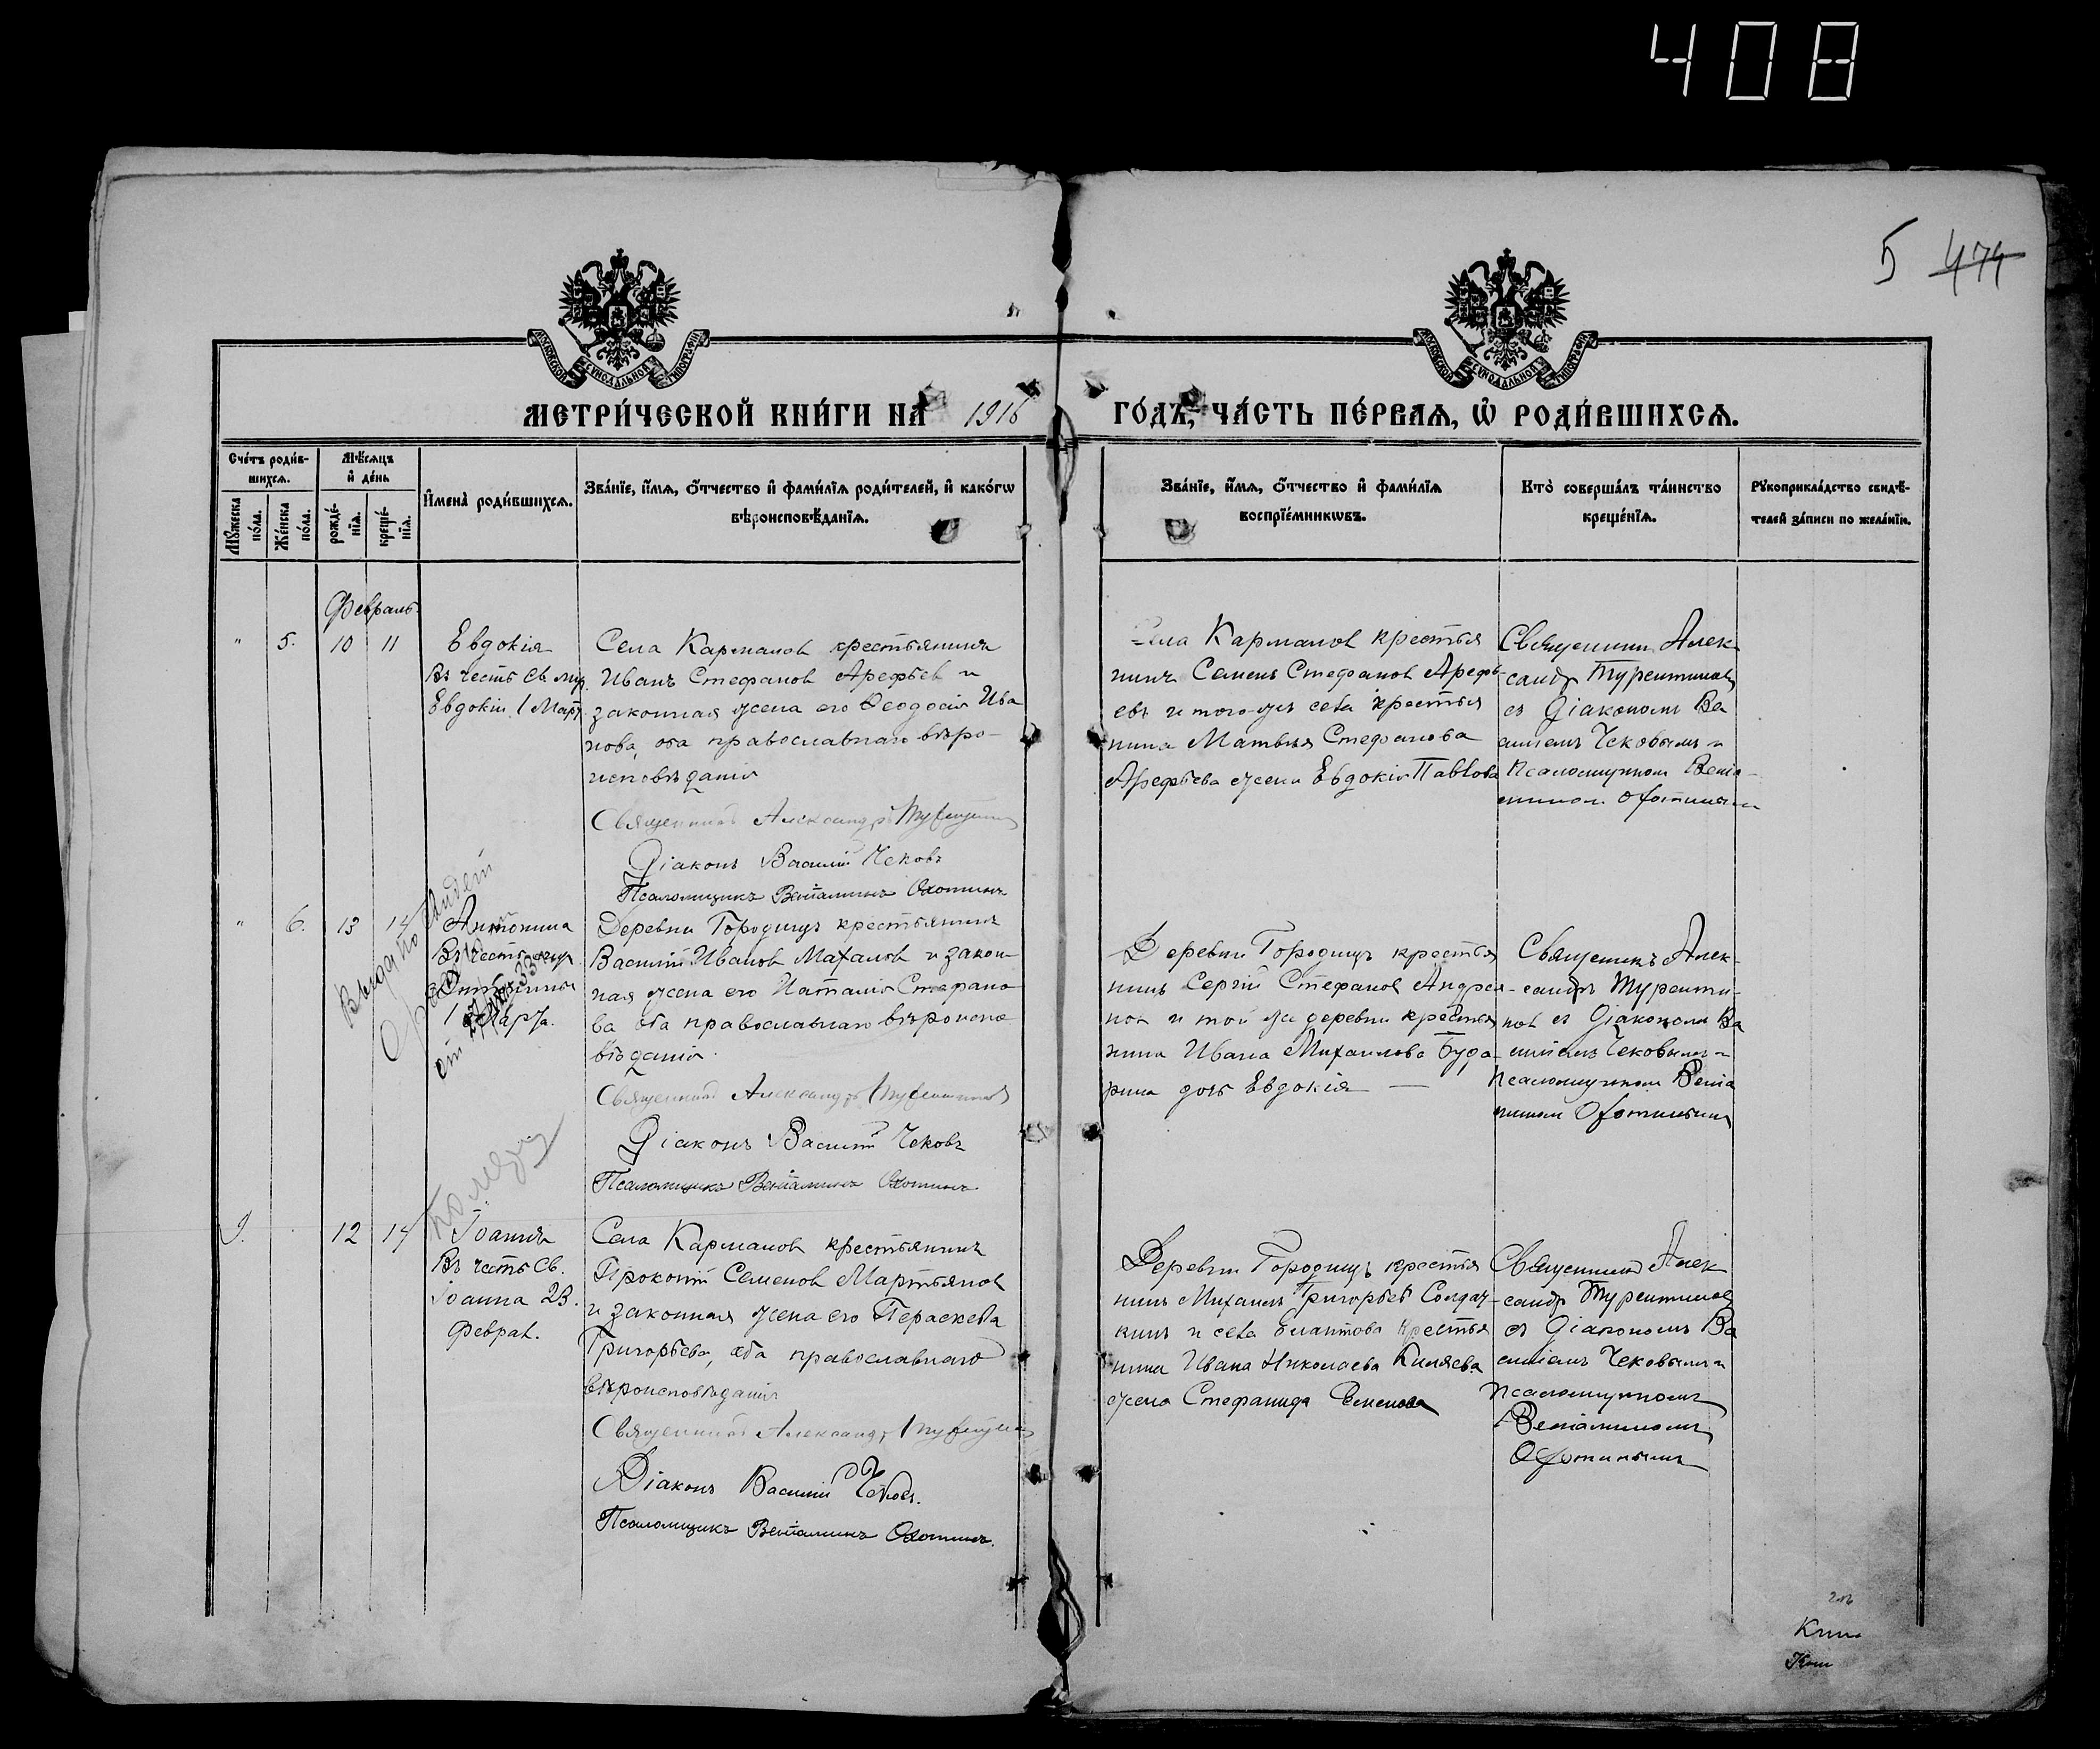 408
5 474
МОСКОВСКОЙ СѴНОДАЛЬНОЙ ТИПОГРАФІИ
МОСКОВСКОЙ СѴНОДАЛЬНОЙ ТИПОГРАФІИ
МЕТРИ́ЧЕСКОЙ КНИ́ГИ НА 1916 ГО́ДЪ, ЧА́СТЬ ПЕ́РВАѦ, Ѡ҆ РОДИ́ВШИХСѦ.
Сче́тъ роди́в-
шихсѧ.
Мꙋ́жеска по́ла.
Же́нска по́ла.
Мѣ́сѧцъ
и҆ де́нь
рожде́-нїѧ.
креще́-нїѧ.
И҆мена̀ роди́вшихсѧ.
Зва́нїе, и҆́мѧ, ѻ҆́тчество и҆ фами́лїѧ роди́телей, и҆ како́гѡ
вѣроисповѣ́данїѧ.
Зва́нїе, и҆́мѧ, ѻ҆́тчество и҆ фами́лїѧ
воспрїе́мникѡвъ.
Кто̀ соверша́лъ та́инство
креще́нїѧ.
Рꙋкоприкла́дство свидѣ́-
телей за́писи по жела́нїю.
Февраль
" 5. 10 11
Евдокія
Въ честь Св. мр.
Евдокіи 1 Март.
Села Карманов крестьянинъ
Иванъ Стефанов Арефьев и
законная жена его Ѳеодосія Ива
нова, оба православнаго вѣро-
исповѣданія
Священникъ Александръ
Діаконъ Василій Чековъ
Псаломщикъ Веніаминъ Охотинъ
Села Карманов крестья
нинъ Семенъ Стефанов Арефь-
евъ и того-жъ села крестья
нина Матвѣя Стефанова
Арефьева жена Евдокія Павлова
Священник Алек
сандр Турентинов
съ Діаконом Ва
силіемъ Чековымъ и
Псаломщиком Веніа-
мином Охотиным
" 6. 13 14
Антонина
Въ честь мр.
Антонины
1 Марта.
Выдано
Деревни Городищъ крестьянинъ
Василій Иванов Махалов и закон-
ная жена его Наталія Стефано
ва оба православнаго вѣроиспо
вѣданія.
Священникъ Александръ
Діаконъ Василій Чековъ
Псаломщикъ Веніаминъ Охотинъ.
Деревни Городищъ крестья
нинъ Сергій Стефанов Андрея-
нов и той же деревни крестья
нина Ивана Михаилова Буда-
рина дочь Евдокія —
Священникъ Алек-
сандръ Туренти-
нов съ Діаконом Ва
силіемъ Чековымъ и
Псаломщиком Веніа
мином Охотинымъ
9. 12 14
Іоаннъ
Въ честь Св.
Іоанна 23.
Феврал.
Села Карманов крестьянинъ
Прокопій Семенов Мартьянов
и законная жена его Пераскева
Григорьева, оба православнаго
вѣроисповѣданія
Священникъ Александръ
Діаконъ Василій Чековъ.
Псаломщикъ Веніаминъ Охотинъ.
Деревни Городищъ крестья
нинъ Михаилъ Григорьев Солдат-
кинъ и села крестья
нина Ивана Николаева Киляева
жена Стефанида Семенова
Священник Алек
сандр Турентинов
съ Діакономъ Ва
силіемъ Чековымъ и
Псаломщикомъ
Веніаминомъ
Охотинымъ